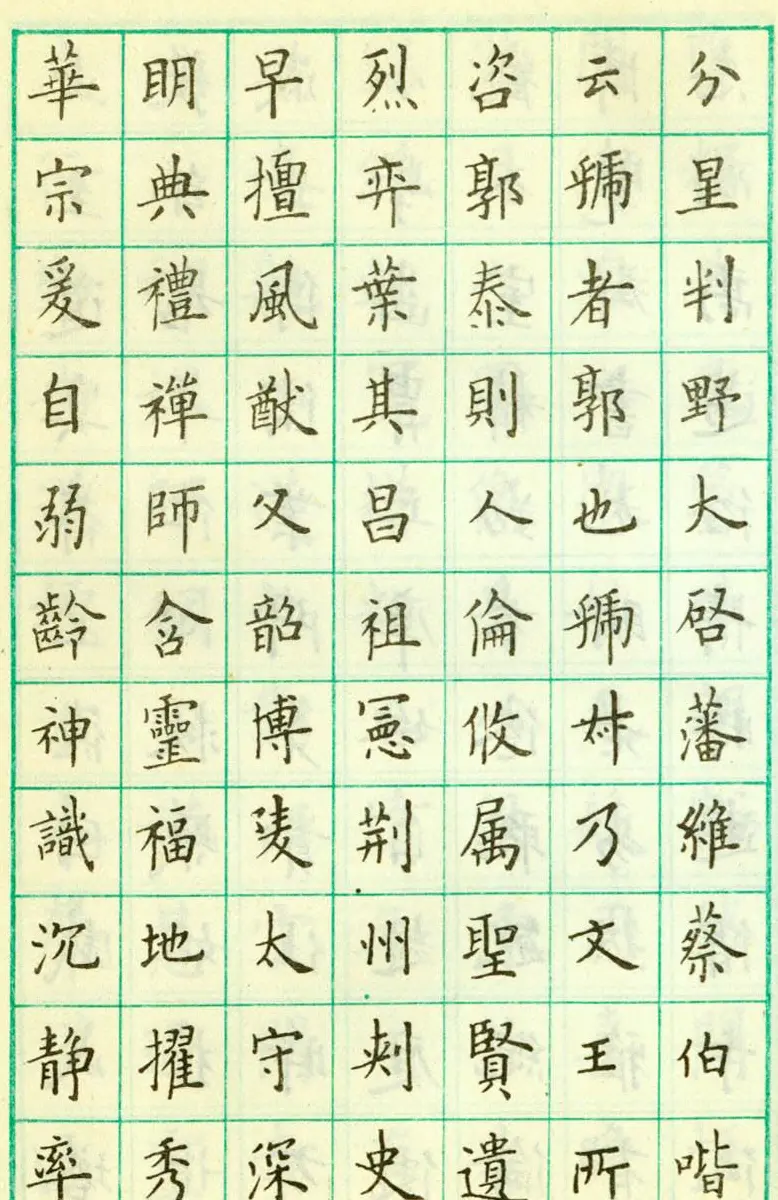 分星判野大啓藩維蔡伯喈
云虢者郭也虢叔乃文王所
咨郭泰則人倫攸属聖賢遺
烈弈葉其昌祖憲荆州刾史
早擅風猷父韶博陵太守深
明典禮禪師含靈福地擢秀
華宗爰自弱齡神識沉静率